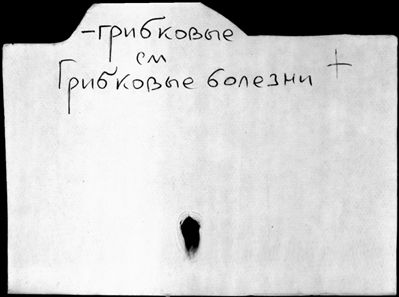 -грибковые
см
Грибковые болезни +